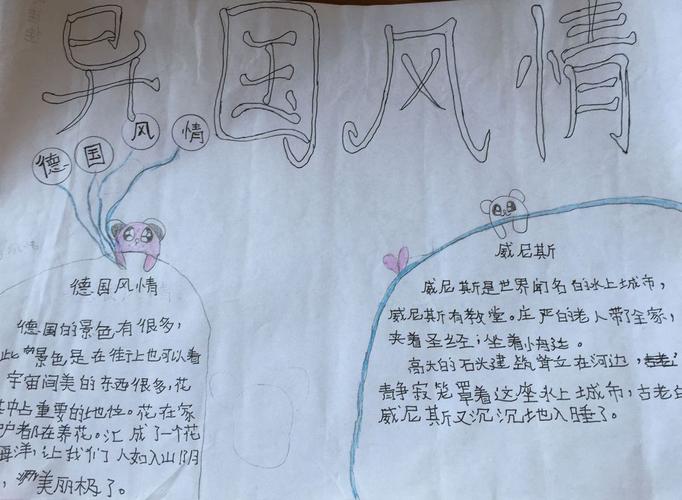 异国风情
德国风情
德国风情
德国的景色有很多,
此景色是在街上也可以看
宇宙间美的东西很多,花
其中占重要的地位。花在家
户都在养花。汇成了一个花
海洋,让我们人如入山阴
,美丽极了。
威尼斯
威尼斯是世界闻名的水上城市,
威尼斯有教堂。庄严的老人带了全家,
夹着圣经坐着小舟过。
高大的石头建筑耸立在河边,
静寂笼罩着这座水上城市,古老的
威尼斯又沉沉地入睡了。